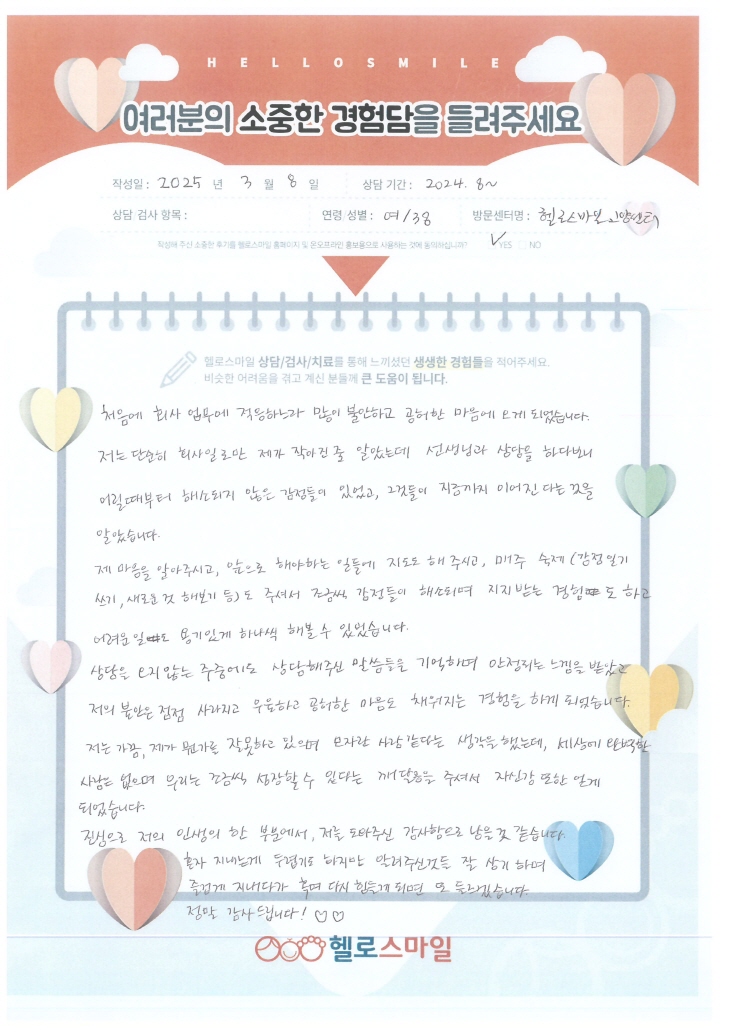 HELLOSMILE
여러분의 소중한 경험담을 들려주세요
작성일 : 2025 년 3 월 8 일 상담 기간 : 2024. 8~
상담 검사 항목 : 연령 성별 : 여/38 방문센터명 : 헬로스마일 고양센터
작성해 주신 소중한 후기를 헬로스마일 홈페이지 및 온오프라인 홍보용으로 사용하는 것에 동의하십니까? ✓YES □NO
헬로스마일 상담/검사/치료를 통해 느끼셨던 생생한 경험들을 적어주세요.
비슷한 어려움을 겪고 계신 분들께 큰 도움이 됩니다.
처음에 회사 업무에 적응하느라 많이 불안하고 공허한 마음에 오게 되었습니다.
저는 단순히 회사일로만 제가 작아진 줄 알았는데 선생님과 상담을 하다보니
어릴때부터 해소되지 않은 감정들이 있었고, 그것들이 지금까지 이어진다는 것을
알았습니다.
제 마음을 알아주시고, 앞으로 해야하는 일들에 지도도 해 주시고, 매주 숙제 (감정일기
쓰기, 새로운 것 해보기 등)도 주셔서 조금씩 감정들이 해소되며 지지받는 경험도 하고
어려운일도 용기있게 하나씩 해볼 수 있었습니다.
상담을 오지않는 주중에도 상담해주신 말씀들을 기억하며 안정되는 느낌을 받았고
저의 불안은 점점 사라지고 우울하고 공허한 마음도 채워지는 경험을 하게 되었습니다.
저는 가끔, 제가 뭔가를 잘못하고 있으며 모자란 사람 같다는 생각을 했는데, 세상에 완벽한
사람은 없으며 우리는 조금씩 성장할 수 있다는 깨달음을 주셔서 자신감 또한 얻게
되었습니다.
진심으로 저의 인생의 한 부분에서, 저를 도와주신 감사함으로 남을 것 같습니다.
혼자 지내는게 두렵기도 하지만 알려주신것들 잘 상기 하며
즐겁게 지내다가 혹여 다시 힘들게 되면 또 들르겠습니다.
정말 감사드립니다! ♡♡
헬로스마일